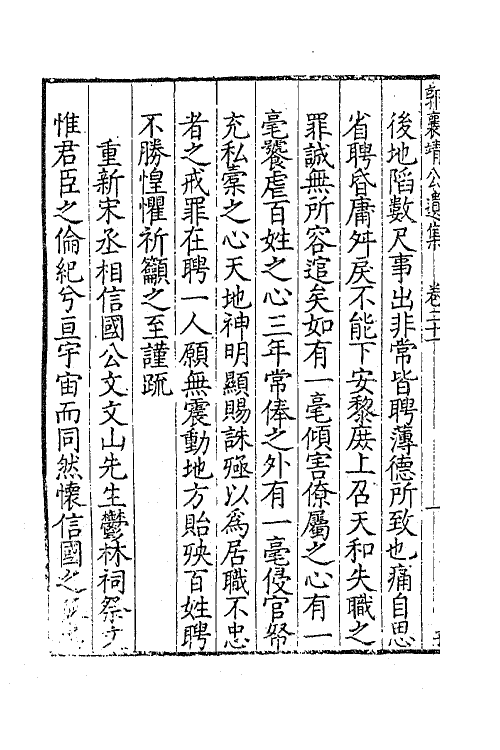 郭襄靖公遺集 卷二十
後地陷數尺事出非常皆聘薄德所致也痛自思
省聘昏庸舛戾不能下安黎庶上召天和失職之
罪誠無所容逭矣如有一毫傾害僚屬之心有一
毫饕虐百姓之心三年常俸之外有一毫侵官帑
充私橐之心天地神明顯賜誅殛以爲居職不忠
者之戒罪在聘一人願無震動地方貽殃百姓聘
不勝惶懼祈籲之至謹疏
重新宋丞相信國公文文山先生鬱林祠祭文
惟君臣之倫紀兮亘宇宙而同然懷信國之